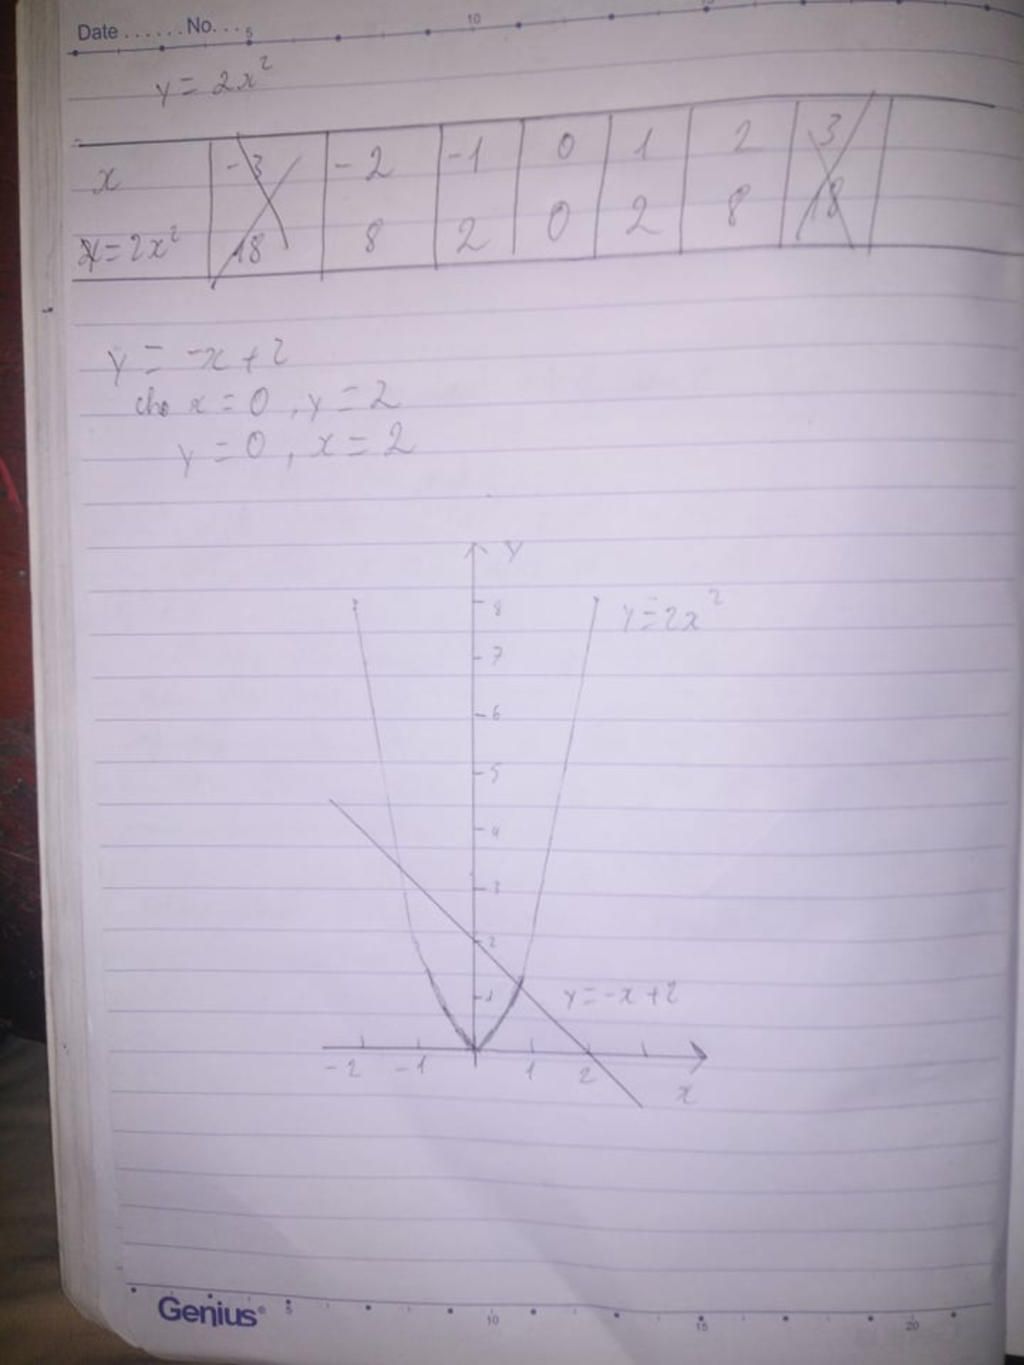 Date ...... No. ...
5 10 15
y = 2x²
x -3 -2 -1 0 1 2 3
y = 2x² 18 8 2 0 2 8 18
y = -x + 2
cho x = 0, y = 2
y = 0, x = 2
y
8 y = 2x²
7
6
5
4
3
2
1 y = -x + 2
-2 -1 1 2
x
Genius 5 10 15 20